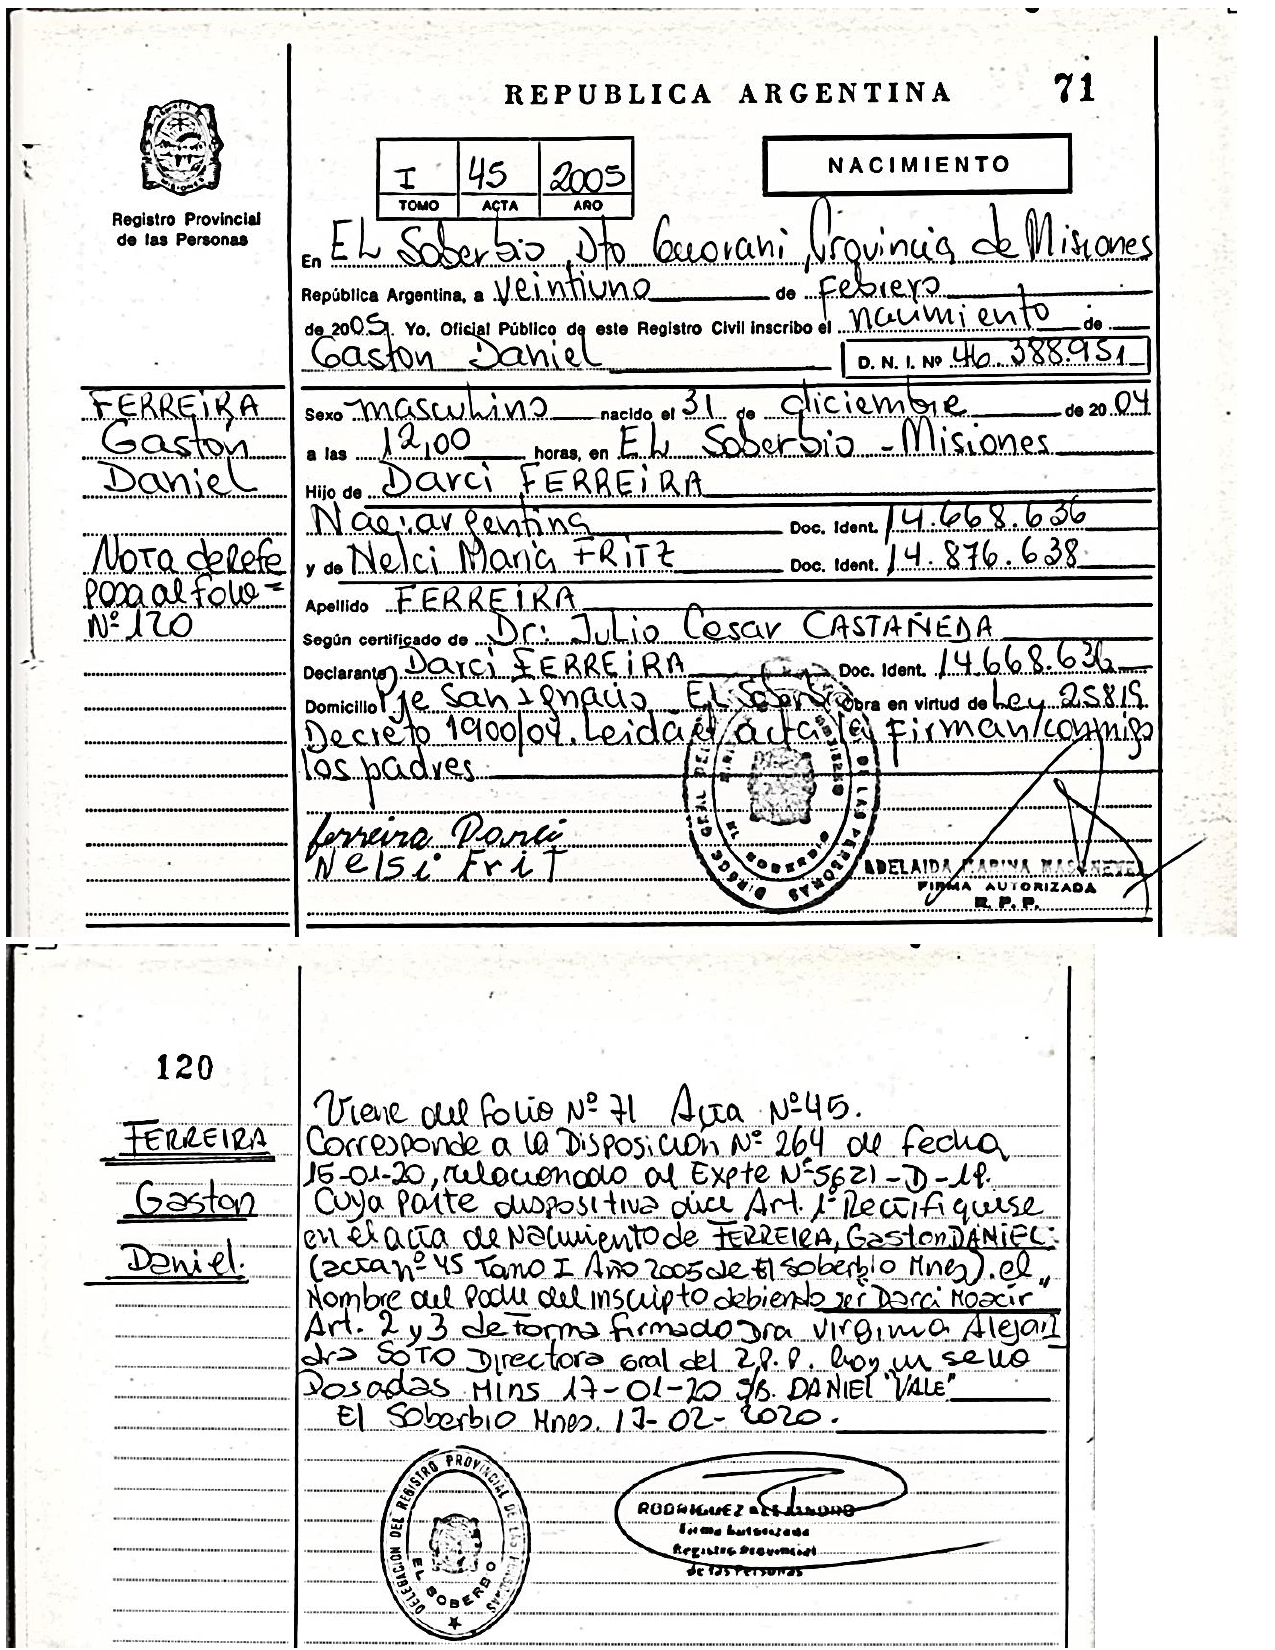 REPUBLICA ARGENTINA 71
I 45 2005
TOMO ACTA AÑO
NACIMIENTO
Registro Provincial
de las Personas
En EL Soberbio, Dto Guarani, Provincia de Misiones
República Argentina, a veintiuno de Febrero
de 2005. Yo, Oficial Público de este Registro Civil inscribo el nacimiento de
Gaston Daniel D. N. I. Nº 46.388.951
FERREIRA
Gaston
Daniel
Nota de Refe
pasa al folio =
Nº 120
Sexo masculino nacido el 31 de diciembre de 2004
a las 12,00 horas, en EL Soberbio - Misiones
Hijo de Darci FERREIRA
Nac. argentina Doc. Ident. 14.668.636
y de Nelci Maria FRITZ Doc. Ident. 14.876.638
Apellido FERREIRA
Según certificado de Dr. Julio Cesar CASTAÑEDA
Declarante Darci FERREIRA Doc. Ident. 14.668.636
Domicilio Pje San Ignacio El Soberbio Obra en virtud de Ley 25819
Decreto 1900/04. Leida el acta la Firman conmigo
los padres
ferreira Darci
Nelsi FriT
EL SOBERBIO
ADELAIDA MARINA
FIRMA AUTORIZADA
R. P. P.
120
FERREIRA
Gaston
Daniel.
Viene del folio Nº 71 Acta Nº 45.
Corresponde a la Disposición Nº 264 de fecha
15-01-20, relacionado al Expte Nº 5621-D-19.
Cuya parte dispositiva dice Art. 1º Rectifiquese
en el acta de Nacimiento de FERREIRA, Gaston DANIEL:
(acta nº 45 Tomo I Año 2005 de El Soberbio Mnes). el
Nombre del Padre del inscripto debiendo ser "Darci Moacir"
Art. 2 y 3 de forma firmado Dra Virginia Alejan
dra SOTO Directora Gral del R.P.P. hay un sello
Posadas Mins 17-01-20 S/B. DANIEL "VALE"
El Soberbio Mnes. 17-02-2020.
DELEGACION DEL REGISTRO PROVINCIAL DE LAS PERSONAS
EL SOBERBIO
RODRIGUEZ ALEJANDRO
Firma Autorizada
Registro Provincial
de las Personas